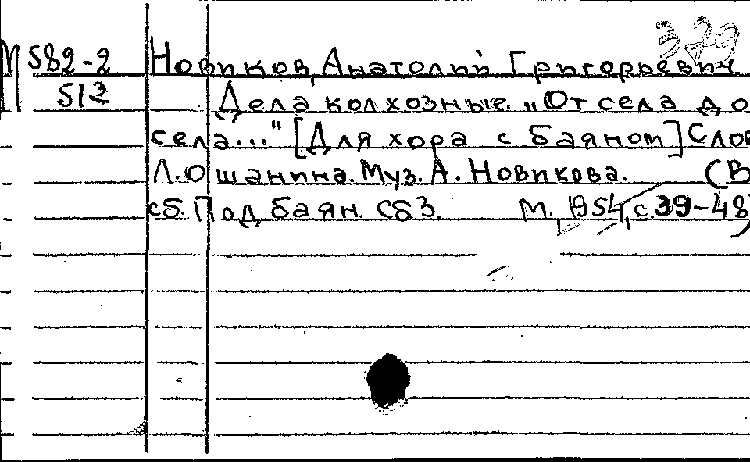 329
М 582-2 Новиков, Анатолий Григорьевич
512 Дела колхозные. "От села до
села..." [Для хора с баяном] Слов
Л. Ошанина. Муз. А. Новикова. (В
сб. Под баян. Сб 3. М., 1954, с. 39-48)